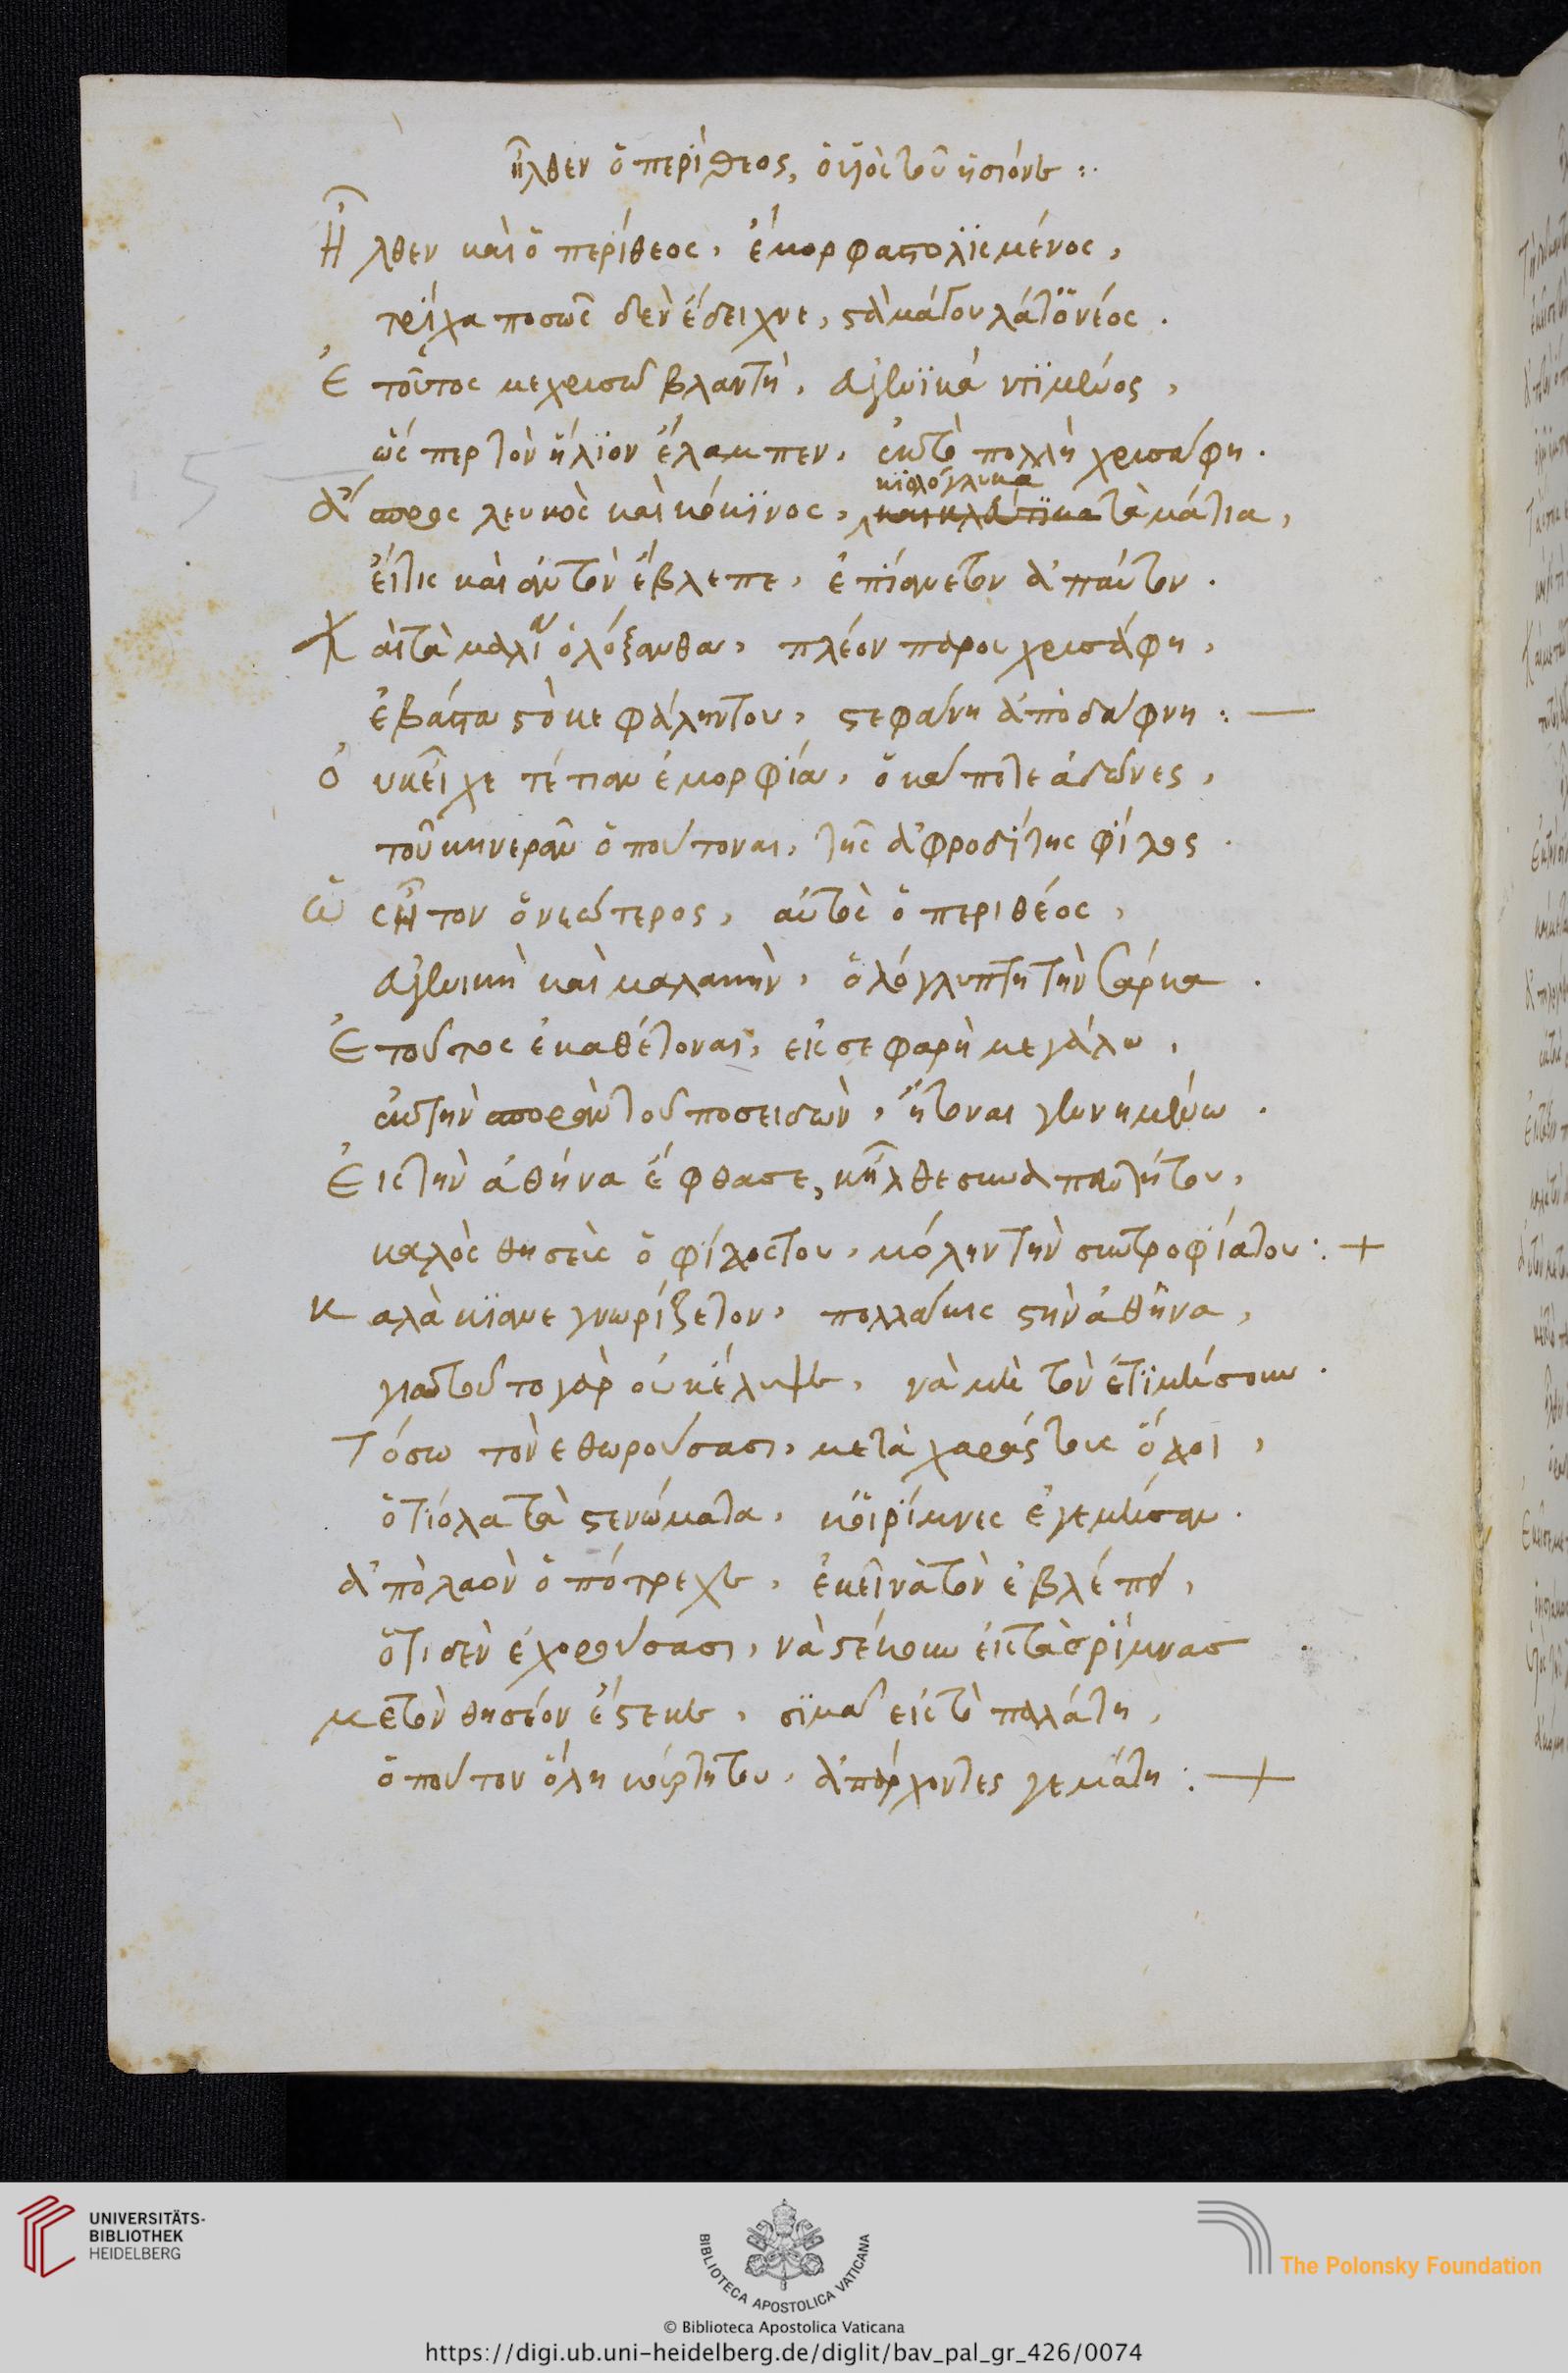 ἦλθεν ὁ περίθεος, ὁ ὑιὸς τοῦ ἠσιόνε :·
Ἦλθεν καὶ ὁ περίθεος, ἐμορφαστολϊςμένος,
τρίχα ποσῶς δὲν ἔδειχνε, στὰ μάγουλά του νέος.
Ἐτοῦτος με χρισὸ βλαντὴ, ντϊμένος,
ὥς περ τὸν ἥλϊον ἔλαμπεν, ἐκ τὸ πολλὴ χρισάφη.
κϊολόγλυκα
Ἄσπρος λευκὸς καὶ κόκϊνος, τὰ μάτια,
εἴτις καὶ αὐτὸν ἔβλεπε, ἐπίανε τον
Καὶ τὰ μαλιὰ ὁλόξανθα, πλέον παρου χρισάφη,
ἐβάστα στὸ κεφάλην του, στεφάνη ἀπὸ δάφνη :—
Οὐκ εἶχε τέτιαν ἐμορφία, ὁ κάποτε ἀδώνες,
τοῦ κηνεραῦ ὁποῦ τοναι, τῆς ἀφροδίτης φίλος
Ὡς ἦτον ὁ νεώτερος, αὐτὸς ὁ περιθέος,
καὶ μαλακὴν, ὁλόγλυπτη τὴν σάρκα.
Ἐτοῦτος ἐκαθέτοναι, εἰς σε φαρὴ μεγάλω,
ἐκ τὴν σπορὰν τοῦ ποσειδὼν, ἤτοναι γενημένω.
Εἰς τὴν ἀθήνα ἔφθασε, κῆλθε σιμὰ
καλὸς θησεὺς ὁ φίλος του, μόλην τὴν σιντροφίατου :+
Καλὰ κϊανε γνωρίζετον, πολλάκις στὴν ἀθήνα,
γιατοῦτο γὰρ οὐκ ἔλειψε, νὰ μὲ τὸν ἐτϊμήσουν.
Τόσω τὸν εθωρούσασι, μετὰ χαράς τους ὅλοι,
ὅτι ὅλα τὰ στενώματα, κοιρίμνες ἐγεμίσαν.
Ἀπὸ λαὸν ὁπότρεχε, ἐκεῖ νὰ τὸν ἐβλέπου,
ὅτι δὲν ἐχορούσασι, νὰ στέκουν εἰς τὰς ρίμνας
Με τὸν θησέον ἔστεκε, σϊμὰ εἰς τὸ παλάτη,
ὁποῦ τον ὅλη κούρτη του, ἀπάρχοντες γεμάτη :+
UNIVERSITÄTS-
BIBLIOTHEK
HEIDELBERG
BIBLIOTECA APOSTOLICA VATICANA
The Polonsky Foundation
© Biblioteca Apostolica Vaticana
https://digi.ub.uni-heidelberg.de/diglit/bav_pal_gr_426/0074